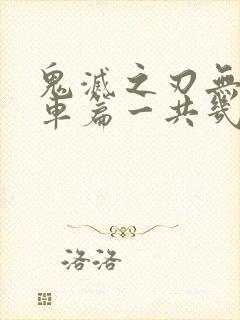 鬼滅之刃無
車篇一共幾
洛洛